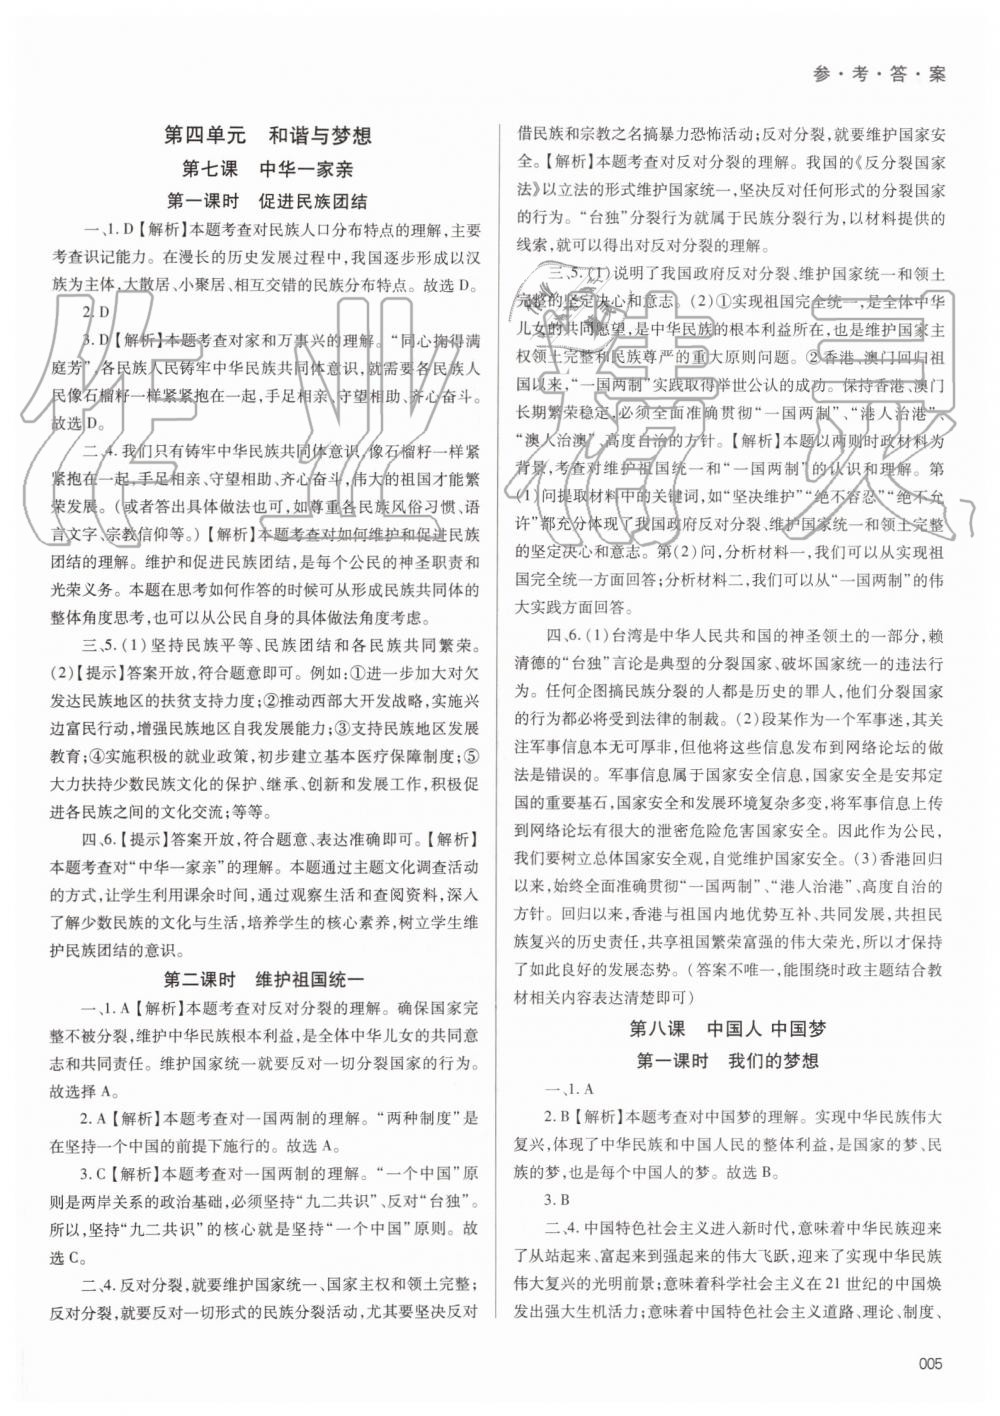 参·考·答·案
第四单元　和谐与梦想
第七课　中华一家亲
第一课时　促进民族团结
一、1. D【解析】本题考查对民族人口分布特点的理解,主要
考查识记能力。在漫长的历史发展过程中,我国逐步形成以汉
族为主体,大散居、小聚居、相互交错的民族分布特点。故选 D。
2. D
3. D【解析】本题考查对家和万事兴的理解。“同心掬得满
庭芳”,各民族人民铸牢中华民族共同体意识,就需要各民族人
民像石榴籽一样紧紧抱在一起,手足相亲、守望相助、齐心奋斗。
故选 D。
二、4. 我们只有铸牢中华民族共同体意识,像石榴籽一样紧
紧抱在一起,手足相亲、守望相助、齐心奋斗,伟大的祖国才能繁
荣发展。(或者答出具体做法也可,如尊重各民族风俗习惯、语
言文字、宗教信仰等。)【解析】本题考查对如何维护和促进民族
团结的理解。维护和促进民族团结,是每个公民的神圣职责和
光荣义务。本题在思考如何作答的时候可从形成民族共同体的
整体角度思考,也可以从公民自身的具体做法角度考虑。
三、5. (1)坚持民族平等、民族团结和各民族共同繁荣。
(2)【提示】答案开放,符合题意即可。例如:①进一步加大对欠
发达民族地区的扶贫支持力度;②推动西部大开发战略,实施兴
边富民行动,增强民族地区自我发展能力;③支持民族地区发展
教育;④实施积极的就业政策,初步建立基本医疗保障制度;⑤
大力扶持少数民族文化的保护、继承、创新和发展工作,积极促
进各民族之间的文化交流;等等。
四、6.【提示】答案开放,符合题意、表达准确即可。【解析】
本题考查对“中华一家亲”的理解。本题通过主题文化调查活动
的方式,让学生利用课余时间,通过观察生活和查阅资料,深入
了解少数民族的文化与生活,培养学生的核心素养,树立学生维
护民族团结的意识。
第二课时　维护祖国统一
一、1. A【解析】本题考查对反对分裂的理解。确保国家完
整不被分裂,维护中华民族根本利益,是全体中华儿女的共同意
志和共同责任。维护国家统一就要反对一切分裂国家的行为。
故选择 A。
2. A【解析】本题考查对一国两制的理解。“两种制度”是
在坚持一个中国的前提下施行的。故选 A。
3. C【解析】本题考查对一国两制的理解。“一个中国”原
则是两岸关系的政治基础,必须坚持“九二共识”、反对“台独”。
所以,坚持“九二共识”的核心就是坚持“一个中国”原则。故
选 C。
二、4. 反对分裂,就要维护国家统一、国家主权和领土完整;
反对分裂,就要反对一切形式的民族分裂活动,尤其要坚决反对
借民族和宗教之名搞暴力恐怖活动;反对分裂,就要维护国家安
全。【解析】本题考查对反对分裂的理解。我国的《反分裂国家
法》以立法的形式维护国家统一,坚决反对任何形式的分裂国家
的行为。“台独”分裂行为就属于民族分裂行为,以材料提供的
线索,就可以得出对反对分裂的理解。
三、5. (1)说明了我国政府反对分裂、维护国家统一和领土
完整的坚定决心和意志。(2)①实现祖国完全统一,是全体中华
儿女的共同愿望,是中华民族的根本利益所在,是维护国家主
权领土完整和民族尊严的重大原则问题。②香港、澳门回归祖
国以来,“一国两制”实践取得举世公认的成功。保持香港、澳门
长期繁荣稳定,必须全面准确贯彻“一国两制”、“港人治港”、
“澳人治澳”、高度自治的方针。【解析】本题以两则时政材料为
背景,考查对维护祖国统一和“一国两制”的认识和理解。第
(1)问提取材料中的关键词,如“坚决维护”“绝不容忍”“绝不允
许”都充分体现了我国政府反对分裂、维护国家统一和领土完整
的坚定决心和意志。第(2)问,分析材料一,我们可以从实现祖
国完全统一方面回答;分析材料二,我们可以从“一国两制”的伟
大实践方面回答。
四、6. (1)台湾是中华人民共和国的神圣领土的一部分,赖
清德的“台独”言论是典型的分裂国家、破坏国家统一的违法行
为。任何企图搞民族分裂的人都是历史的罪人,他们分裂国家
的行为都必将受到法律的制裁。(2)段某作为一个军事迷,其关
注军事信息本无可厚非,但他将这些信息发布到网络论坛的做
法是错误的。军事信息属于国家安全信息,国家安全是安邦定
国的重要基石,国家安全和发展环境复杂多变,将军事信息上传
到网络论坛有很大的泄密危险危害国家安全。因此作为公民,
我们要树立总体国家安全观,自觉维护国家安全。(3)香港回归
以来,始终全面准确贯彻“一国两制”、“港人治港”、高度自治的
方针。回归以来,香港与祖国内地优势互补、共同发展,共担民
族复兴的历史责任,共享祖国繁荣富强的伟大荣光,所以才保持
了如此良好的发展态势。(答案不唯一,能围绕时政主题结合教
材相关内容表达清楚即可)
第八课　中国人 中国梦
第一课时　我们的梦想
一、1. A
2. B【解析】本题考查对中国梦的理解。实现中华民族伟大
复兴,体现了中华民族和中国人民的整体利益,是国家的梦、民
族的梦,也是每个中国人的梦。故选 B。
3. B
二、4. 中国特色社会主义进入新时代,意味着中华民族迎来
了从站起来、富起来到强起来的伟大飞跃,迎来了实现中华民族
伟大复兴的光明前景;意味着科学社会主义在 21 世纪的中国焕
发出强大生机活力;意味着中国特色社会主义道路、理论、制度、
005
作业精灵